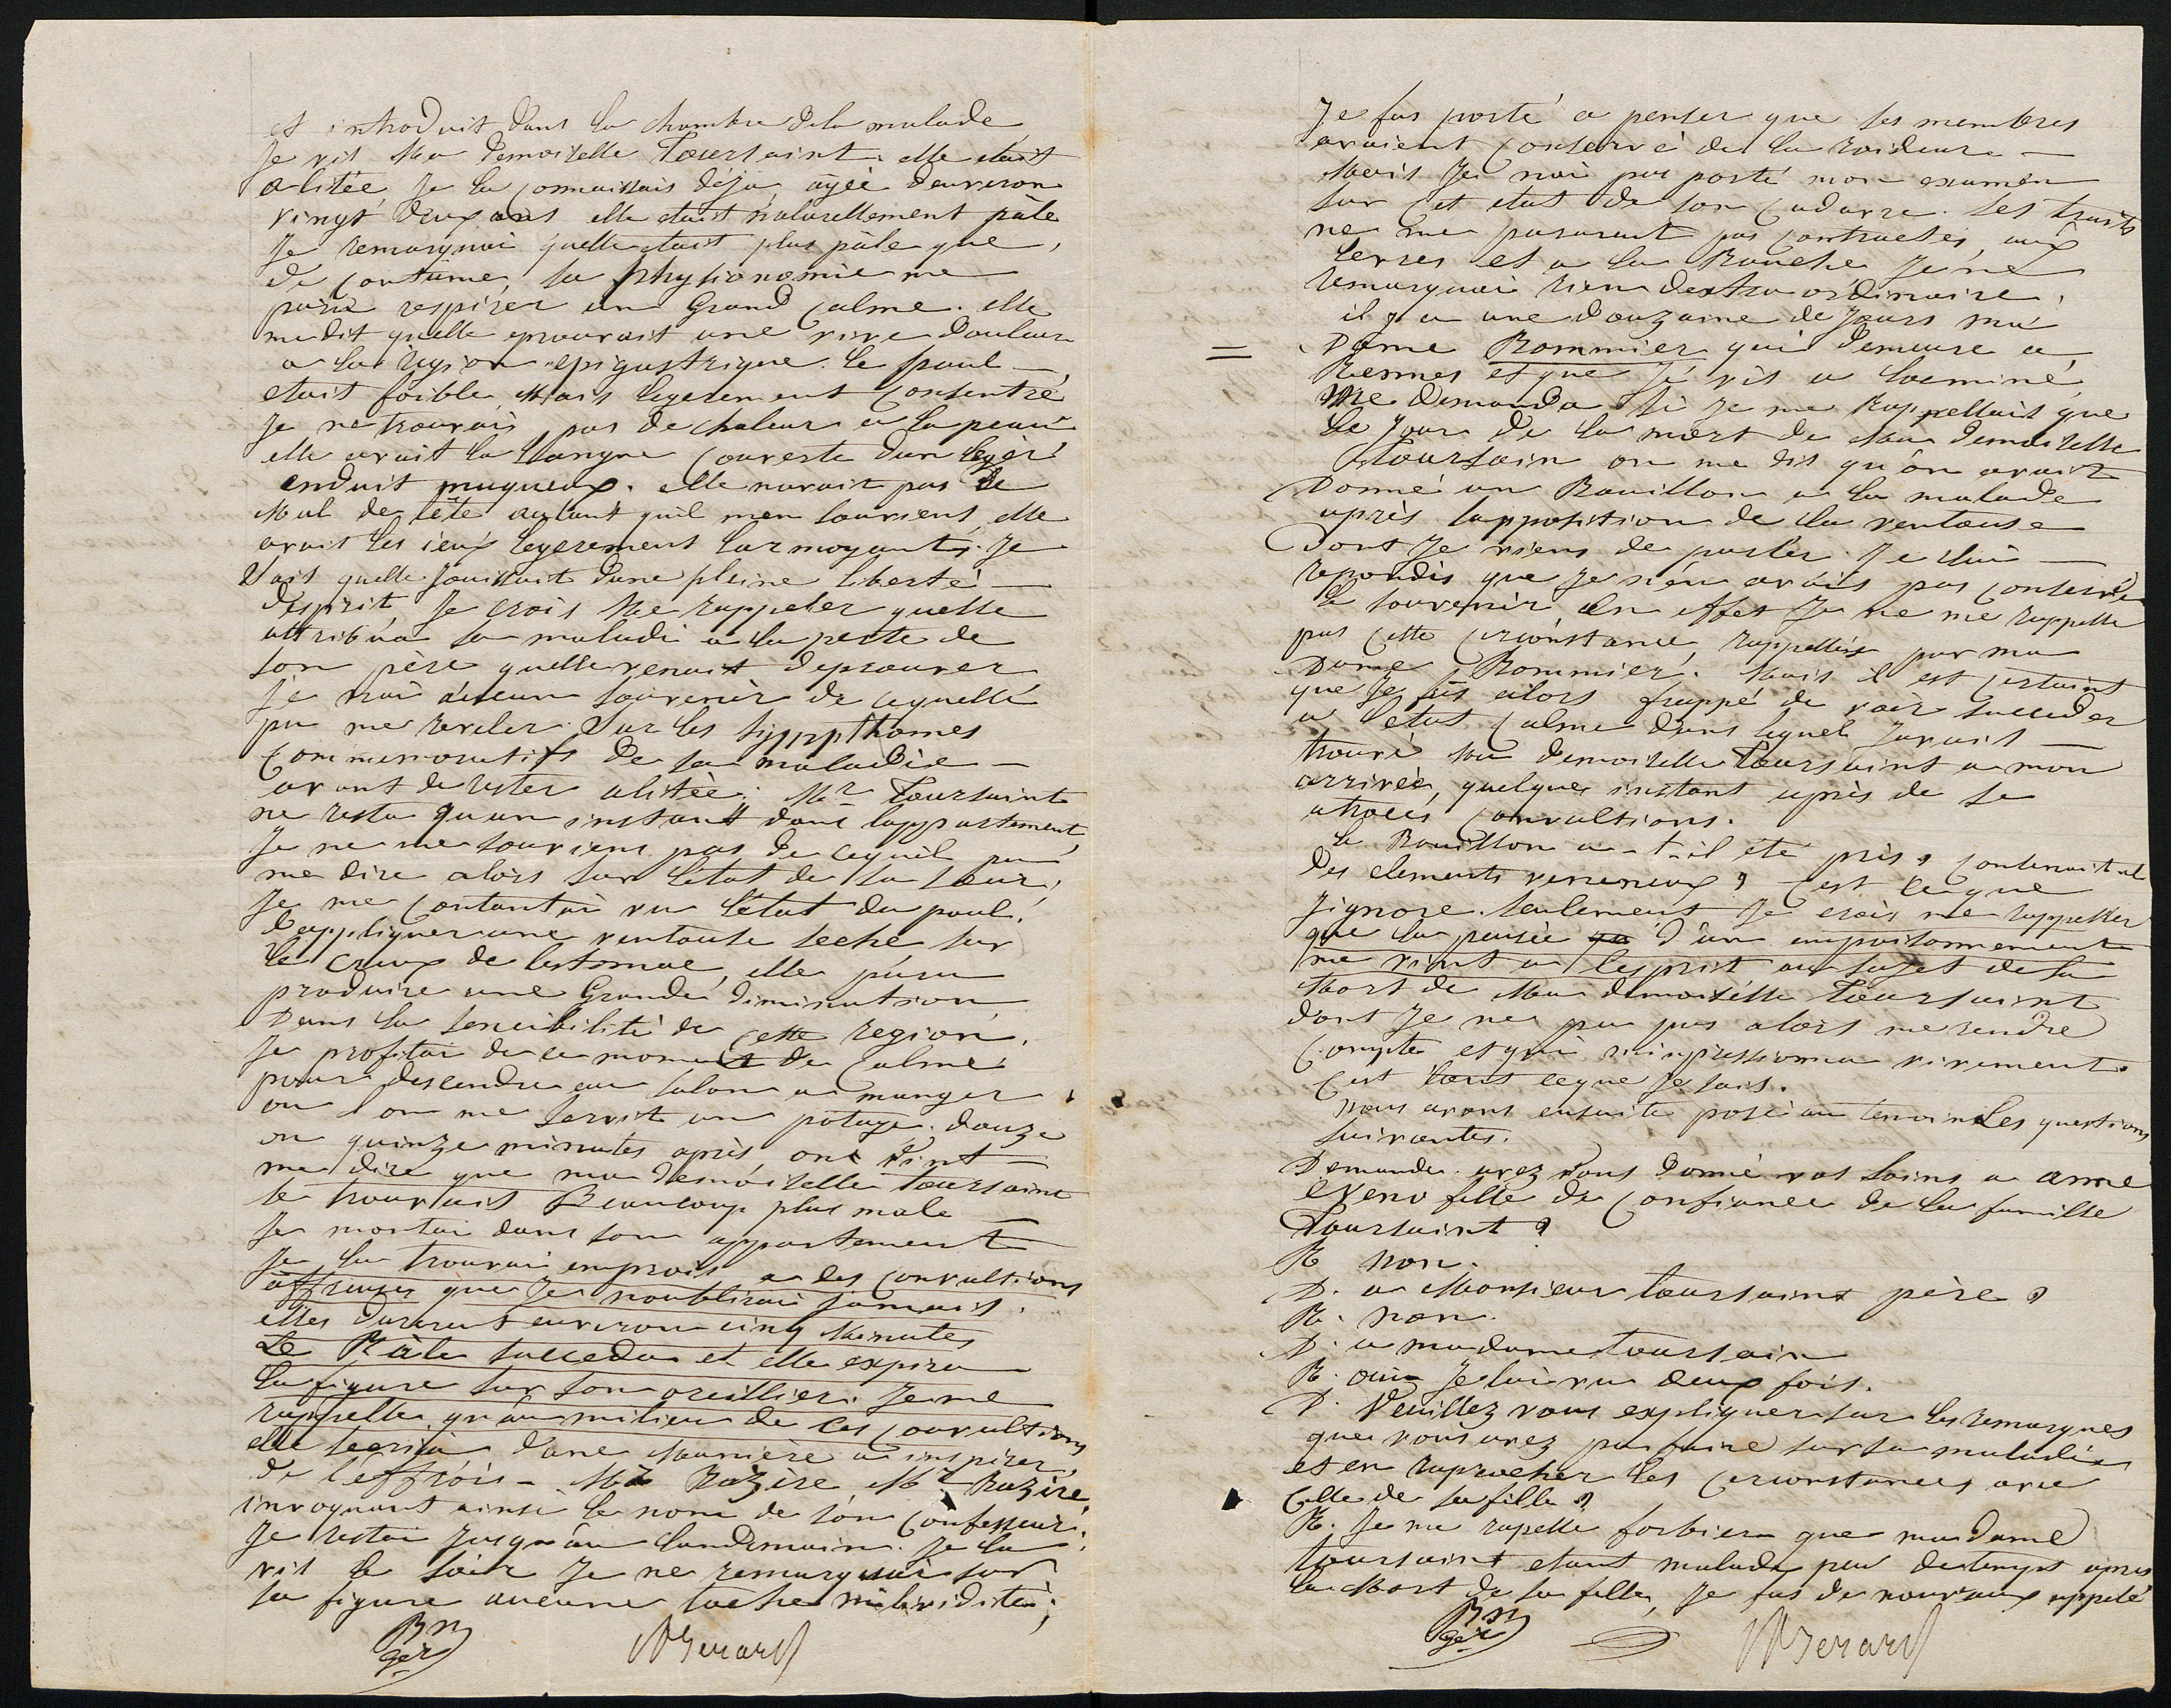 et introduit dans la chambre dela malade
Je vis Ma demoiselle Toursaint. elle etait
alitée, Je la Connaissais déja, agée d'environ
vingt deux ans elle etait naturellement pâle
Je remarquai quelle etait plus pâle que
de Coutûme, sa physionomie me
paru respirer un Grand Calme. elle
me dit quelle eprouvait une vive douleur
a la region epigastrique. le poul —
etait foible, Mais legerement Consentré
Je ne trouvais pas de chaleur a la peau
elle avait la Llangue Couverte d'un leger
enduit muqueux. elle navait pas de
Mal de tête autant quil men souviens, elle
avait les ieux legerement larmoyants. Je
sais quelle Jouissait d'une pleine liberté —
d'esprit, Je crois Me rappeler quelle
attribua sa maladi a la perte de
son père quelle venait deprouver
Je nai aucun souvenir de cequelle
pu me reveler sur les sympthomes
Commemoratifs de sa maladie —
avant de rester alitée. Mr Toursaint
ne resta quun instant dans lappartement,
Je ne me souviens pas de cequil pu
me dire alors sur l'etat de sa soeur,
Je me Contantai vu l'état du poul.
d'appliquer une ventouse seche sur
le creux de lestomac, elle paru
produire une Grande diminution
Dans la sencibilité de Cette region.
Je profitai de ce moment de Calme
pour descendre au salon a manger
ou l'on me servit un potage. douze
ou quinze minutes après, on vint —
me dire que ma demoiselle toursaint
se trouvait Beaucoup plus male —
Je montai dans son appartement
Je la trouvai emproit a des Convultions
affreuses que Je noublirai jamais.
elles durerent environ cinq Minutes,
Le Râle succeda et elle expira
la figure sur son oreillier. Je me
rappelle qu'au milieu de ces Convultions
elle secria d'une Manière a inspirer
de l'effrois - Mr Rozière Mr Rozière,
invoquant ainsi le nom de son Confesseur.
Je restai Jusquau landemain. Je la
vis le soir Je ne remarquai sur
sa figure aucune tache ni lividité;
Je fus porté a penser que ses membres
avaient Conservé de la roideur —
Mais Je nai pas porté mon examen
sur Cet etat de son Cadavre. Les traits
ne me parurent pas Contractés, aux
levres et a la Bouche Je ne
remarquai rien dextraordinaire.
il y a une douzaine de Jours ma
Dame Rommier qui demeure a
Rennes et que Je vis a Locminé
Me demanda si Je me rappellait que
le Jour de la mort de Ma demoiselle
Toursain on me dit qu'on avait
Donné un Bouillon a la malade
après lapposition de la ventouse
Dont Je viens de parler. Je lui —
repondis que Je n'en avais pas Conservé
le souvenir en effet Je ne me rappelle
pas Cette Circonstance, rappellée par ma
Dame Rommier. Mais il est Certaint
que Je fus alors frappé de voir succeder
a l'etat Calme dans lequel Javais —
trouvé ma demoiselle Toursaint a mon
arrivée, quelques instant après de se
atroces Convultions.
le Bouillon a-t-il eté pris? Contenait il
des elements veneneux? C'est ce que
Jignore. seulement Je crois me rappeller
que la pensée d'un empoisonnement
me vint a l'esprit au sujet de la
Mort de Ma demoiselle Toursaint
dont Je ne pu pas alors me rendre
Compte et qui mimpressionna vivement.
C'est tout ceque Je sais.
Nous avons ensuite posé au temoin Les questions
suivantes.
Demande. avez vous donné vos soins a anne
Eveno fille de Confiance de la famille
Toursaint?
R non.
D. a Monsieur toursaint père?
R. non.
D. a madame toursain
R. oui Je lai vu deux fois.
D. Veuillez vous expliquer sur les remarques
que vous avez pu faire sur sa maladie
et en raprocher les Circonstances avec
Celle de sa fille?
R. Je me rapelle forbien que madame
toursaint etant malade peu detemps apres
la Mort de sa fille, Je fus de nouveaux appelé